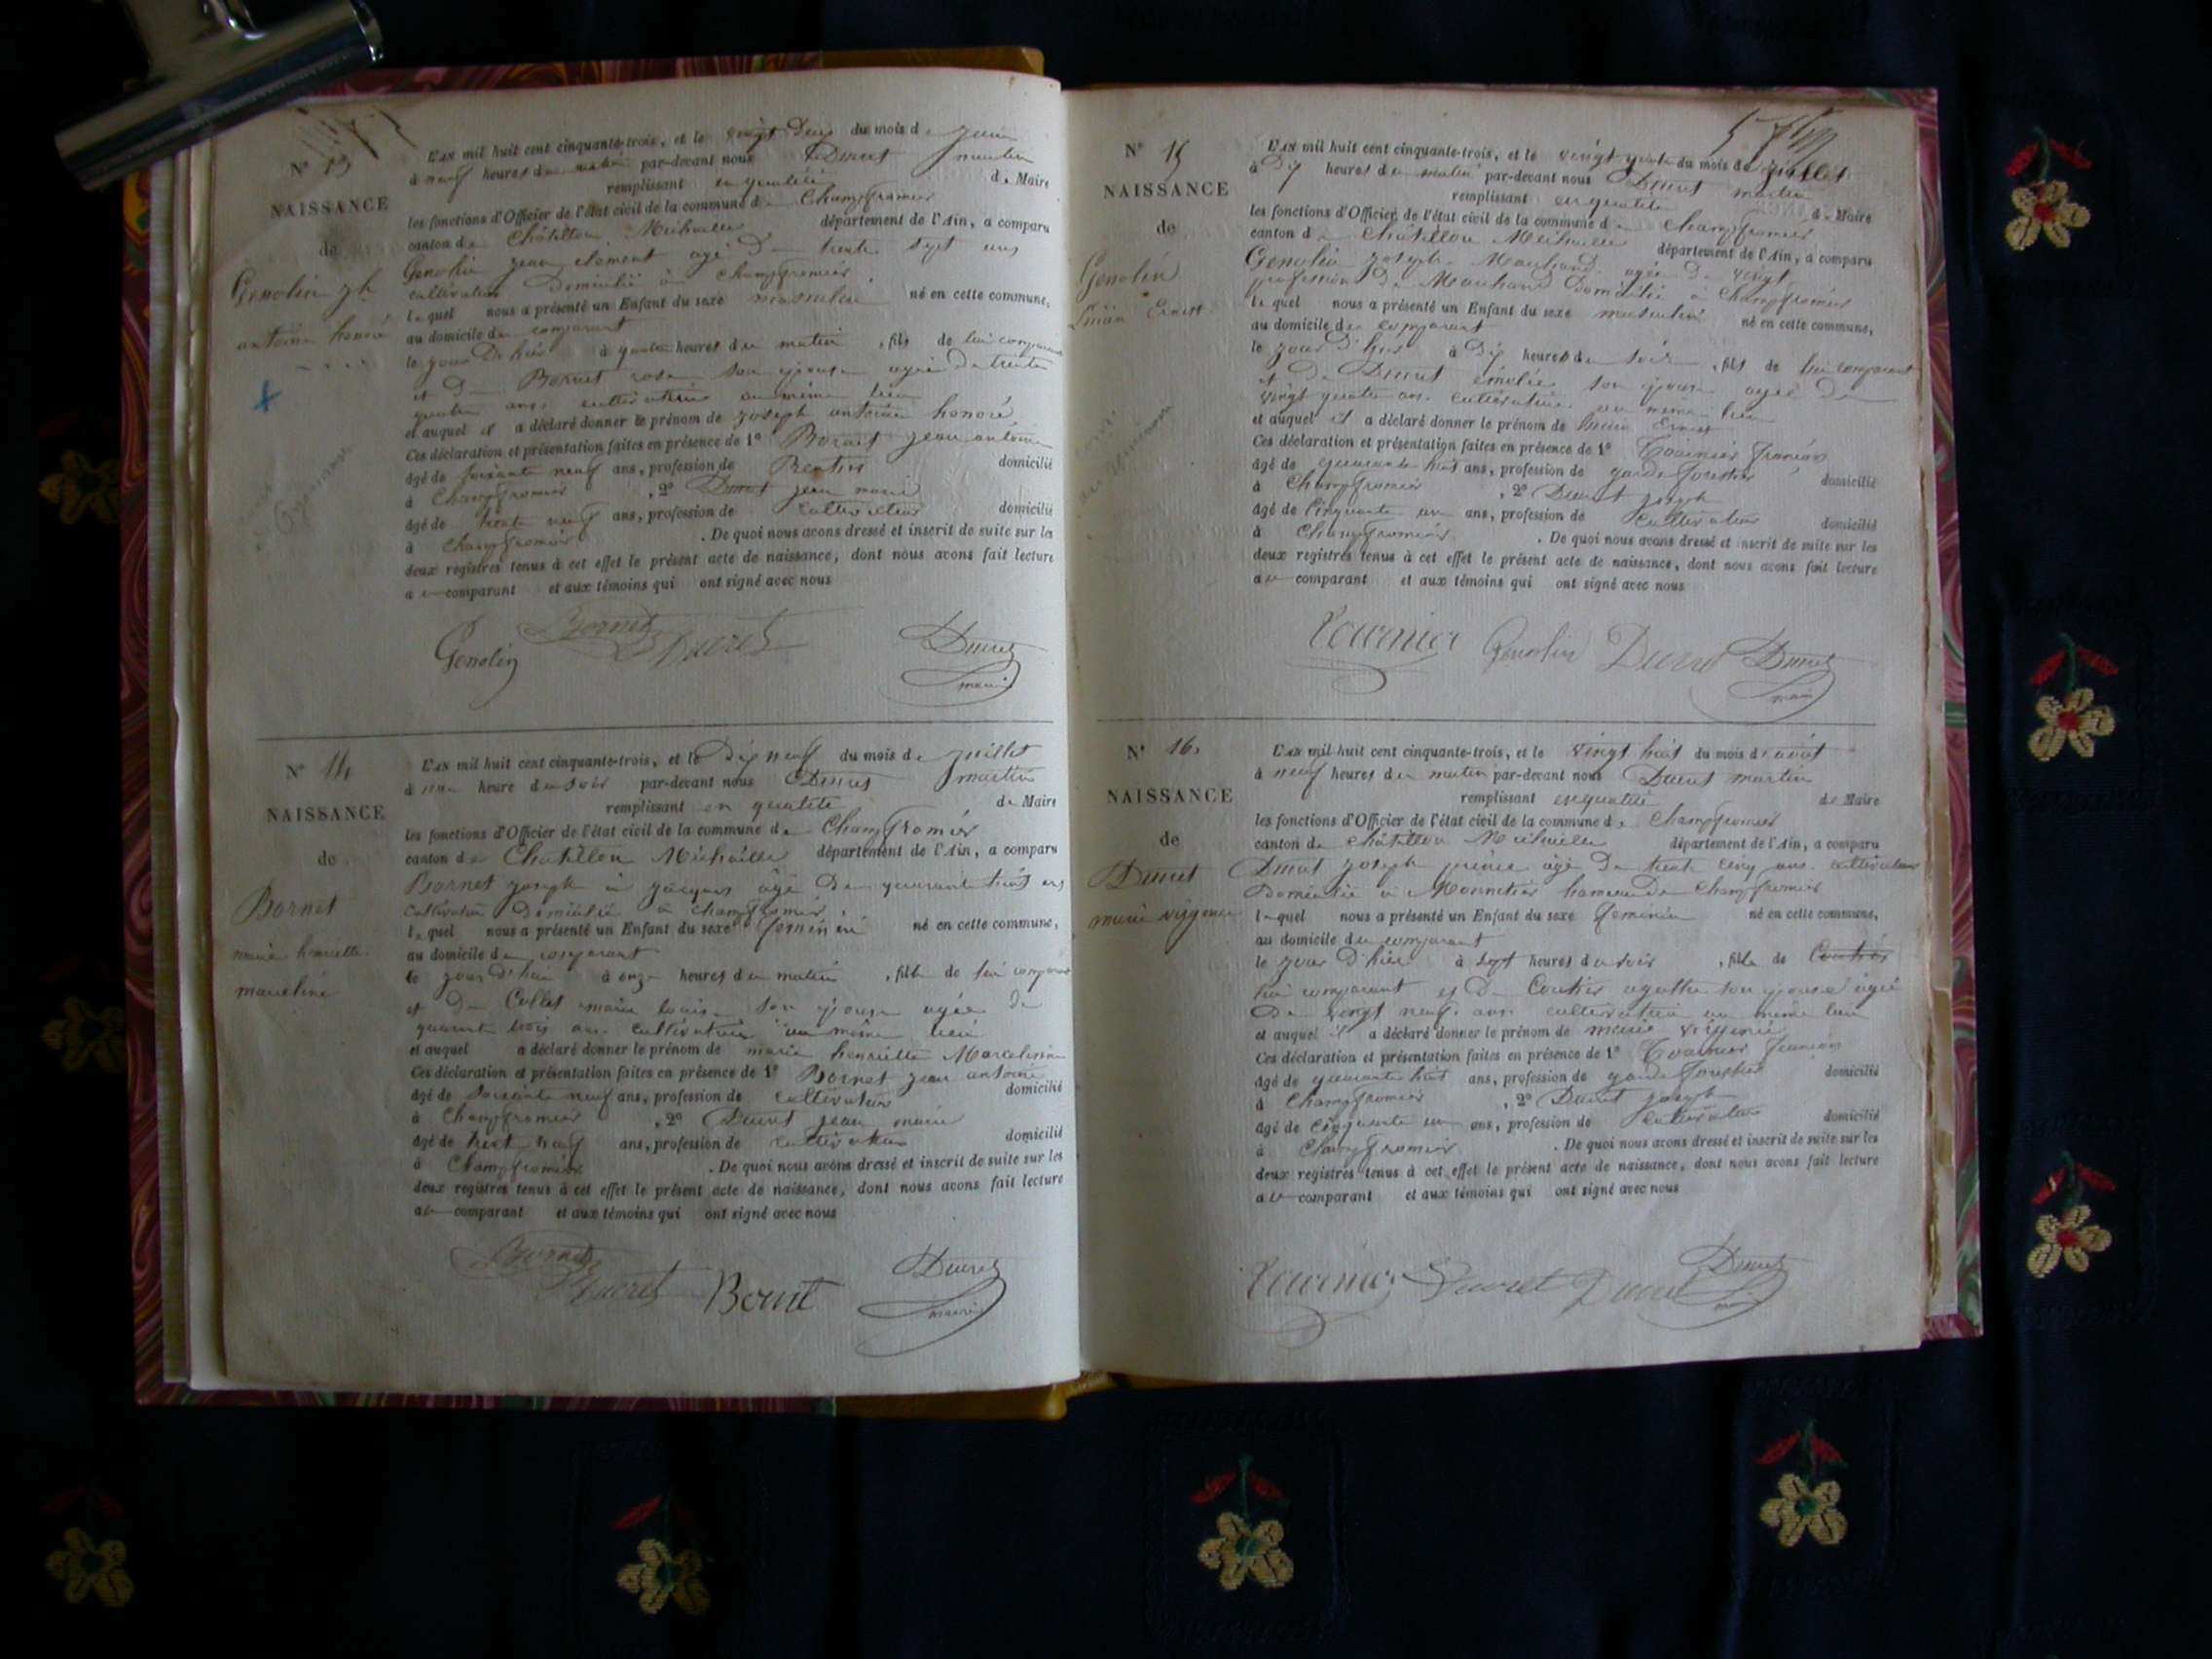 N° 13
NAISSANCE
de
Genolin jh
antoine honoré
L'AN mil huit cent cinquante-trois, et le vingt deux du mois de juin
à neuf heures du matin par-devant nous Ducret martin
remplissant en qualité de Maire
les fonctions d'Officier de l'état civil de la commune de Champfromier
canton de Châtillon Michaille département de l'Ain, a comparu
Genolin jean clement agé de trente sept ans
cultivateur domicilié à champfromier
lequel nous a présenté un Enfant du sexe masculin né en cette commune,
au domicile du comparant
le jour d'hier à quatre heures du matin , fils de lui comparant
et de Bornet rose son epouse agée de trente
quatre ans cultivatrice au même lieu
et auquel il a déclaré donner le prénom de joseph antoine honoré
Ces déclaration et présentation faites en présence de 1° Bornet jean antoine
âgé de soixante neuf ans, profession de Rentier domicilié
à Champfromier , 2° Ducret jean marie
âgé de trente neuf ans, profession de cultivateur domicilié
à Champfromier . De quoi nous avons dressé et inscrit de suite sur les
deux registres tenus à cet effet le présent acte de naissance, dont nous avons fait lecture
au comparant et aux témoins qui ont signé avec nous
Genolin Bornet Ducret Ducret
maire
N° 14
NAISSANCE
de
Bornet
marie henriette
marceline
L'AN mil huit cent cinquante-trois, et le Dix neuf du mois de juillet
à une heure du soir par-devant nous Ducret martin
remplissant en qualité de Maire
les fonctions d'Officier de l'état civil de la commune de Champfromier
canton de Chatillon Michaille département de l'Ain, a comparu
Bornet joseph à jacques âgé de quarante huit ans
cultivateur domicilié à champfromier
lequel nous a présenté un Enfant du sexe feminin né en cette commune,
au domicile du comparant
le jour d'hier à onze heures du matin , fille de lui comparant
et de Collet marie louise son epouse agée de
quarante trois ans cultivatrice au même lieu
et auquel a déclaré donner le prénom de marie henriette Marceline
Ces déclaration et présentation faites en présence de 1° Bornet jean antoine
âgé de soixante neuf ans, profession de cultivateur domicilié
à Champfromier , 2° Ducret jean marie
âgé de trente neuf ans, profession de cultivateur domicilié
à Champfromier . De quoi nous avons dressé et inscrit de suite sur les
deux registres tenus à cet effet le présent acte de naissance, dont nous avons fait lecture
au comparant et aux témoins qui ont signé avec nous
Bornet Ducret Bornet Ducret
maire
N° 15
NAISSANCE
de
Genolin
Ernest
L'AN mil huit cent cinquante-trois, et le vingt quatre du mois de juillet
à Dix heures du matin par-devant nous Ducret martin
remplissant en qualité de Maire
les fonctions d'Officier de l'état civil de la commune de champfromier
canton de Châtillon Michaille département de l'Ain, a comparu
Genolin joseph Marchand agée de vingt
profession de Marchand domicilié à Champfromier
lequel nous a présenté un Enfant du sexe masculin né en cette commune,
au domicile du comparant
le jour d'hier à dix heures du soir , fils de lui comparant
et de Ducret émélie son epouse agée de
vingt quatre ans cultivatrice au même lieu
et auquel il a déclaré donner le prénom de Ernest
Ces déclaration et présentation faites en présence de 1° Tournier françois
âgé de quarante huit ans, profession de garde forestier domicilié
à Champfromier , 2° Ducret joseph
âgé de Cinquante un ans, profession de cultivateur domicilié
à Champfromier . De quoi nous avons dressé et inscrit de suite sur les
deux registres tenus à cet effet le présent acte de naissance, dont nous avons fait lecture
au comparant et aux témoins qui ont signé avec nous
Tournier Genolin Ducret Ducret
maire
N° 16
NAISSANCE
de
Ducret
marie virginie
L'AN mil huit cent cinquante-trois, et le vingt huit du mois d'août
à neuf heures du matin par-devant nous Ducret martin
remplissant en qualité de Maire
les fonctions d'Officier de l'état civil de la commune de Champfromier
canton de châtillon Michaille département de l'Ain, a comparu
Ducret joseph âgé de trente cinq ans cultivateur
domicilié à Monnetier hameau de Champfromier
lequel nous a présenté un Enfant du sexe feminin né en cette commune,
au domicile du comparant
le jour d'hier à sept heures du soir , fille de Coutier
lui comparant et de Coutier agathe son epouse agée
de vingt neuf ans cultivatrice au même lieu
et auquel il a déclaré donner le prénom de marie virginie
Ces déclaration et présentation faites en présence de 1° Tournier françois
âgé de quarante huit ans, profession de garde forestier domicilié
à Champfromier , 2° Ducret joseph
âgé de cinquante un ans, profession de cultivateur domicilié
à Champfromier . De quoi nous avons dressé et inscrit de suite sur les
deux registres tenus à cet effet le présent acte de naissance, dont nous avons fait lecture
au comparant et aux témoins qui ont signé avec nous
Tournier Ducret Ducret Ducret